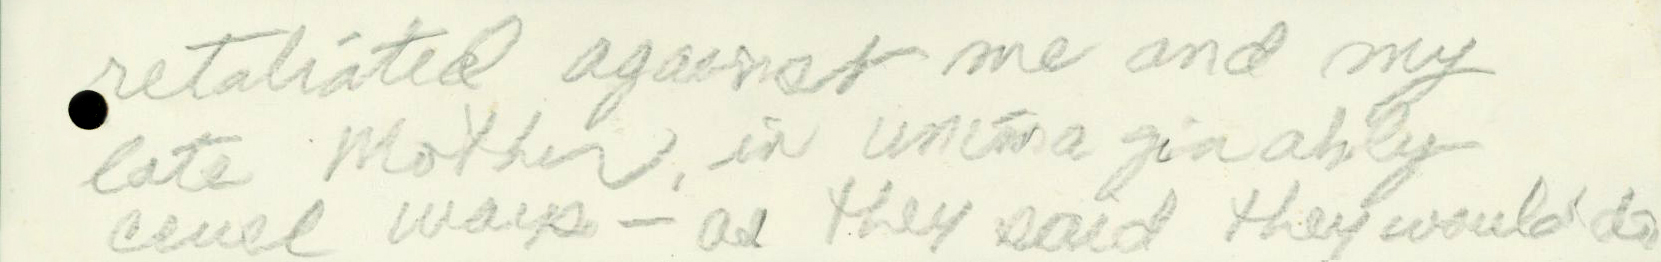 retaliated against me and my
late Mother, in unimaginably
cruel ways - as they said they would do